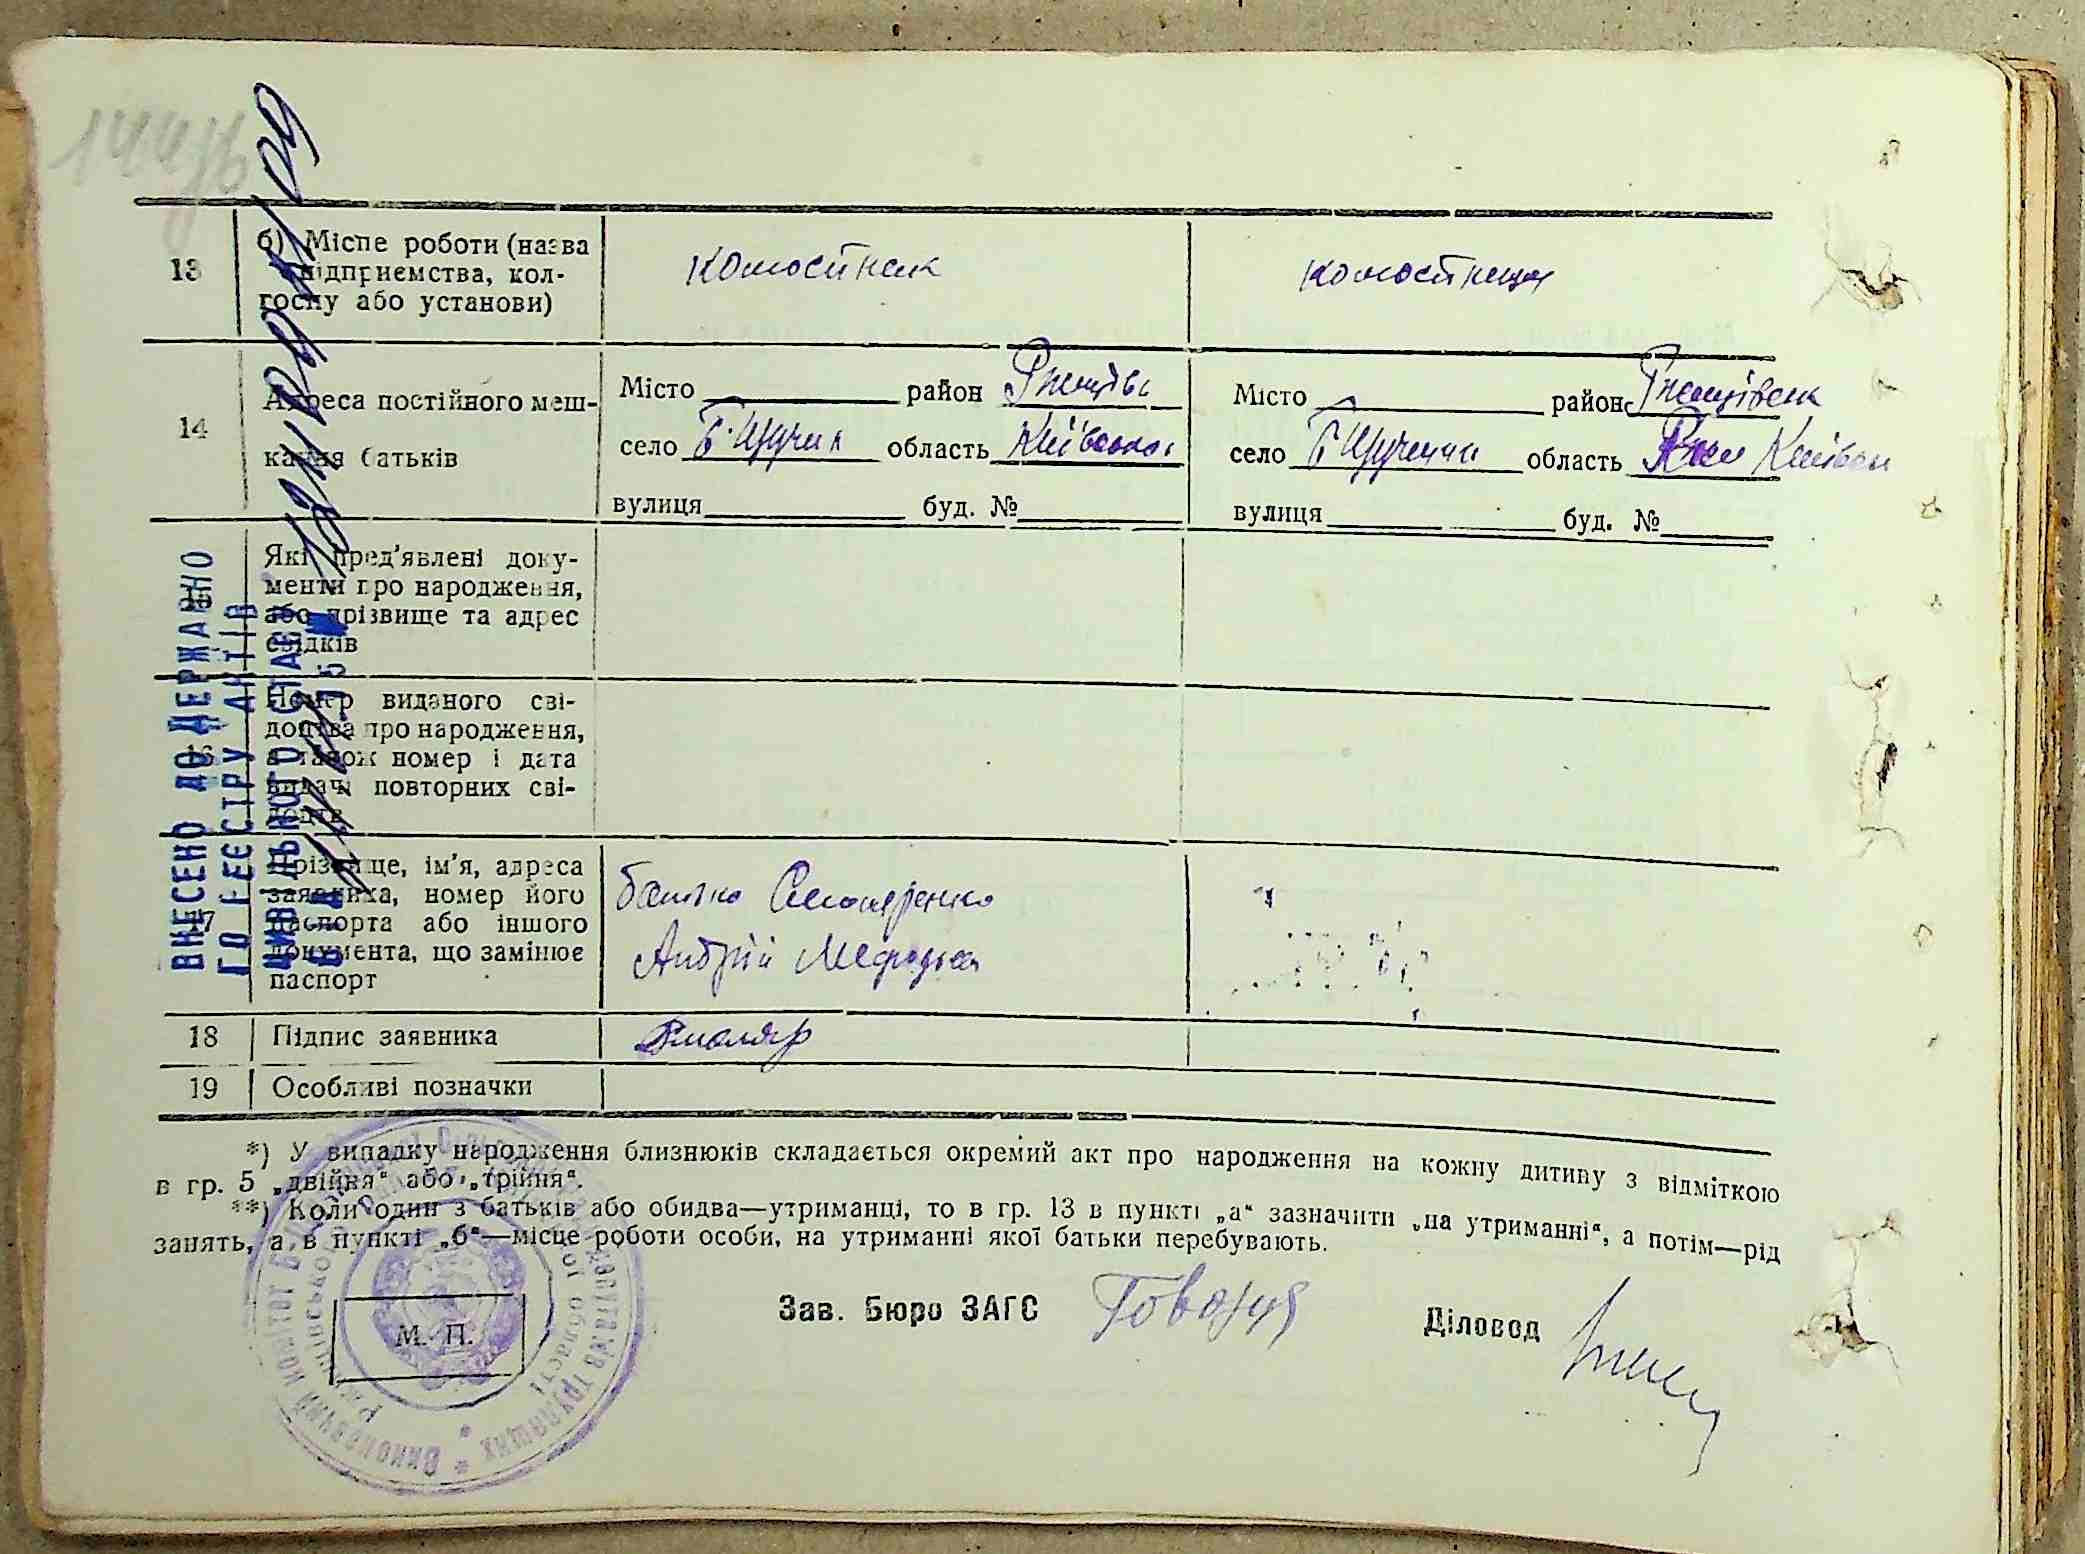 13
б) Місце роботи (назва
підприємства, кол-
госпу або установи)
колгоспник
колгоспниця
14
Адреса постійного меш-
кання батьків
Місто район Ржищівс
село Б. Щучин область Київської
вулиця буд. №
Місто район Ржищівськ
село область Київськ
вулиця буд. №
15
Які пред'явлені доку-
менти про народження,
або прізвище та адрес
свідків
16
Номер виданого сві-
доцтва про народження,
а також номер і дата
видачі повторних сві-
доцтв
17
Прізвище, ім'я, адреса
заявника, номер його
паспорта або іншого
документа, що замінює
паспорт
батько
Андрій
18
Підпис заявника
19
Особливі позначки
*) У випадку народження близнюків складається окремий акт про народження на кожну дитину з відміткою
в гр. 5 „двійня“ або „трійня“.
**) Коли один з батьків або обидва—утриманці, то в гр. 13 в пункті „а“ зазначити „на утриманні“, а потім—рід
занять, а в пункті „б“—місце роботи особи, на утриманні якої батьки перебувають.
Зав. Бюро ЗАГС
Діловод
М. П.
ВНЕСЕНО ДО ДЕРЖАВНО
ГО РЕЄСТРУ АКТІВ
ЦИВІЛЬНОГО СТАНУ
Виконавчий комітет депутатів трудящих
області